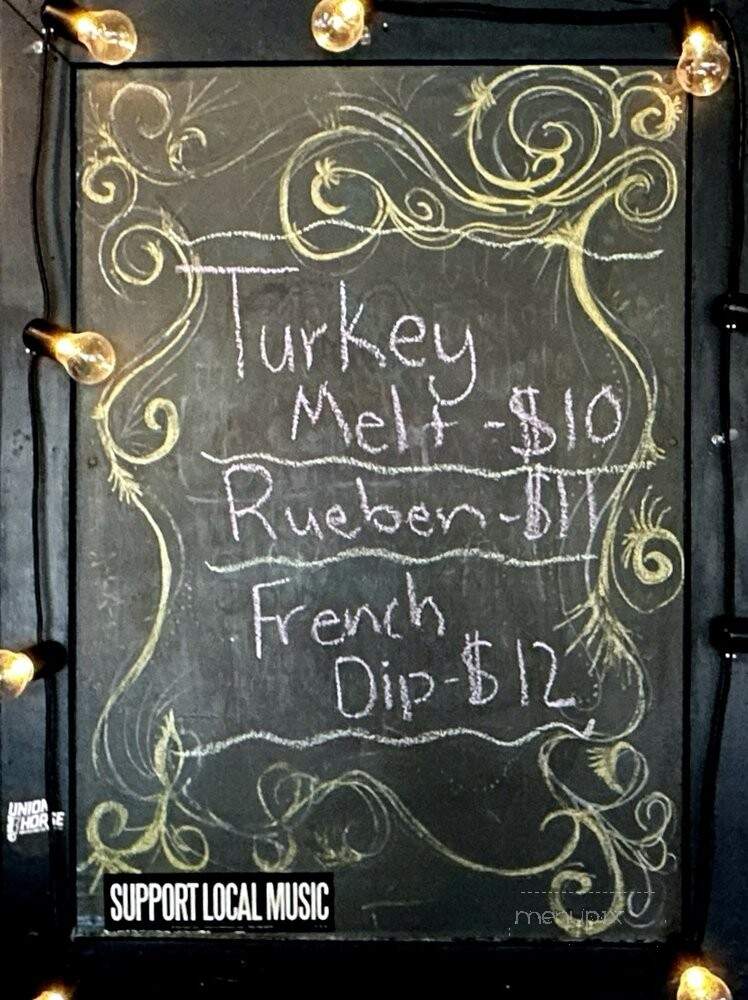 Turkey
Melt - $10
Rueben - $11
French
Dip - $12
UNION
HORSE
SUPPORT LOCAL MUSIC
menupix